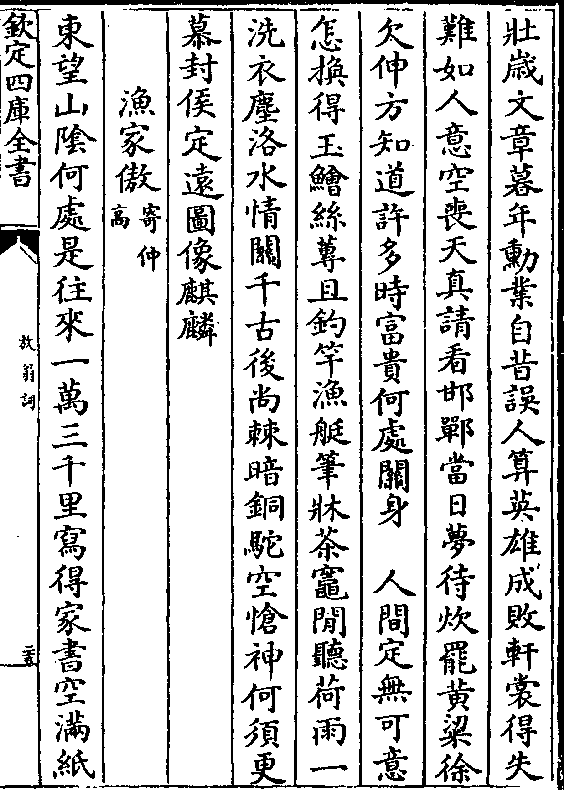 壯歲文章暮年勳業自昔誤人算英雄成敗軒裳得失
難如人意空喪天真請看邯鄲當日夢待炊罷黃粱徐
欠伸方知道許多時富貴何處關身　人間定無可意
怎換得玉鱠絲蓴且釣竿漁艇筆牀茶竈閒聽荷雨一
洗衣塵洛水情關千古後尚棘暗銅駝空愴神何須更
慕封侯定遠圖像麒麟
漁家傲寄仲高
東望山陰何處是往來一萬三千里寫得家書空滿紙
欽定四庫全書
放翁詞